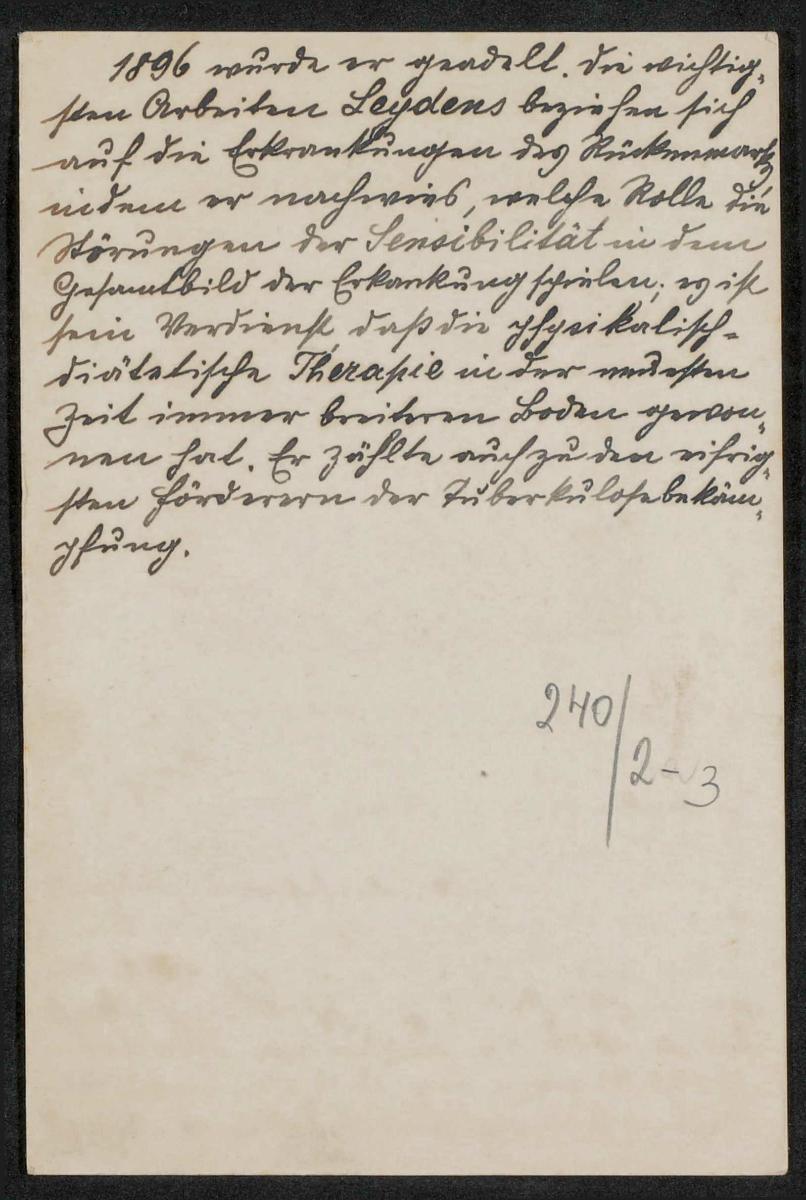 1896 wurde er geadelt. Die wichtig-
sten Arbeiten Leydens beziehen sich
auf die Erkrankungen des Rückenmarks,
indem er nachwies, welche Rolle die
Störungen der Sensibilität in dem
Gesamtbild der Erkankung spielen; es ist
sein Verdienst, daß die physikalisch-
diätetische Therapie in der neuesten
Zeit immer breiteren Boden gewon-
nen hat. Er zählte auch zu den eifrig-
sten Förderern der Tuberkulosebekäm-
pfung.
240/2-3